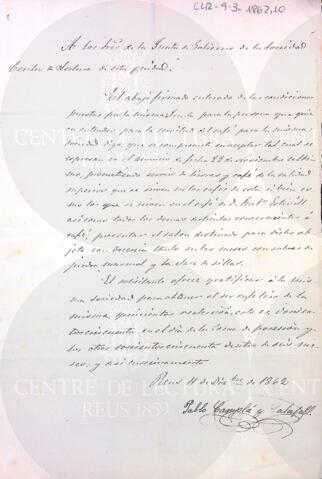 CLR-9-3-1862,10
A los Sres de la Junta de Gobierno de la Sociedad
Centro de Lectura de esta ciudad.
El abajo firmado enterado de las condiciones
puestas por la misma Junta para la persona que quie
ra entender para la comitiva del café para la misma
sociedad diga que se compromete en aceptar tal cual se
expresan en el anuncio de fecha 22 de noviembre
procurando servir de licores y café de la calidad
superior que se sirven en los cafés de esta
mo los que se sirven en el café de D. Antº
así como todos los demas artículos concernientes á
café, presentar el salon destinado para dicho ob
jeto con decencia tanto en las mesas con sobres de
piedra marmol y la clase de sillas.
El solicitante ofrece gratificar á la mis
ma sociedad para obtener el ser cafetero de la
misma quinientos reales vellon, esto es, doscien
tos cincuenta en el dia de la toma de posesion y
los otros doscientos cincuenta dentro de seis me
ses, y asi sucesivamente
Reus 11 de Dizbre de 1862
Pablo Camplá y
CENTRE DE LECTURA
REUS 1859